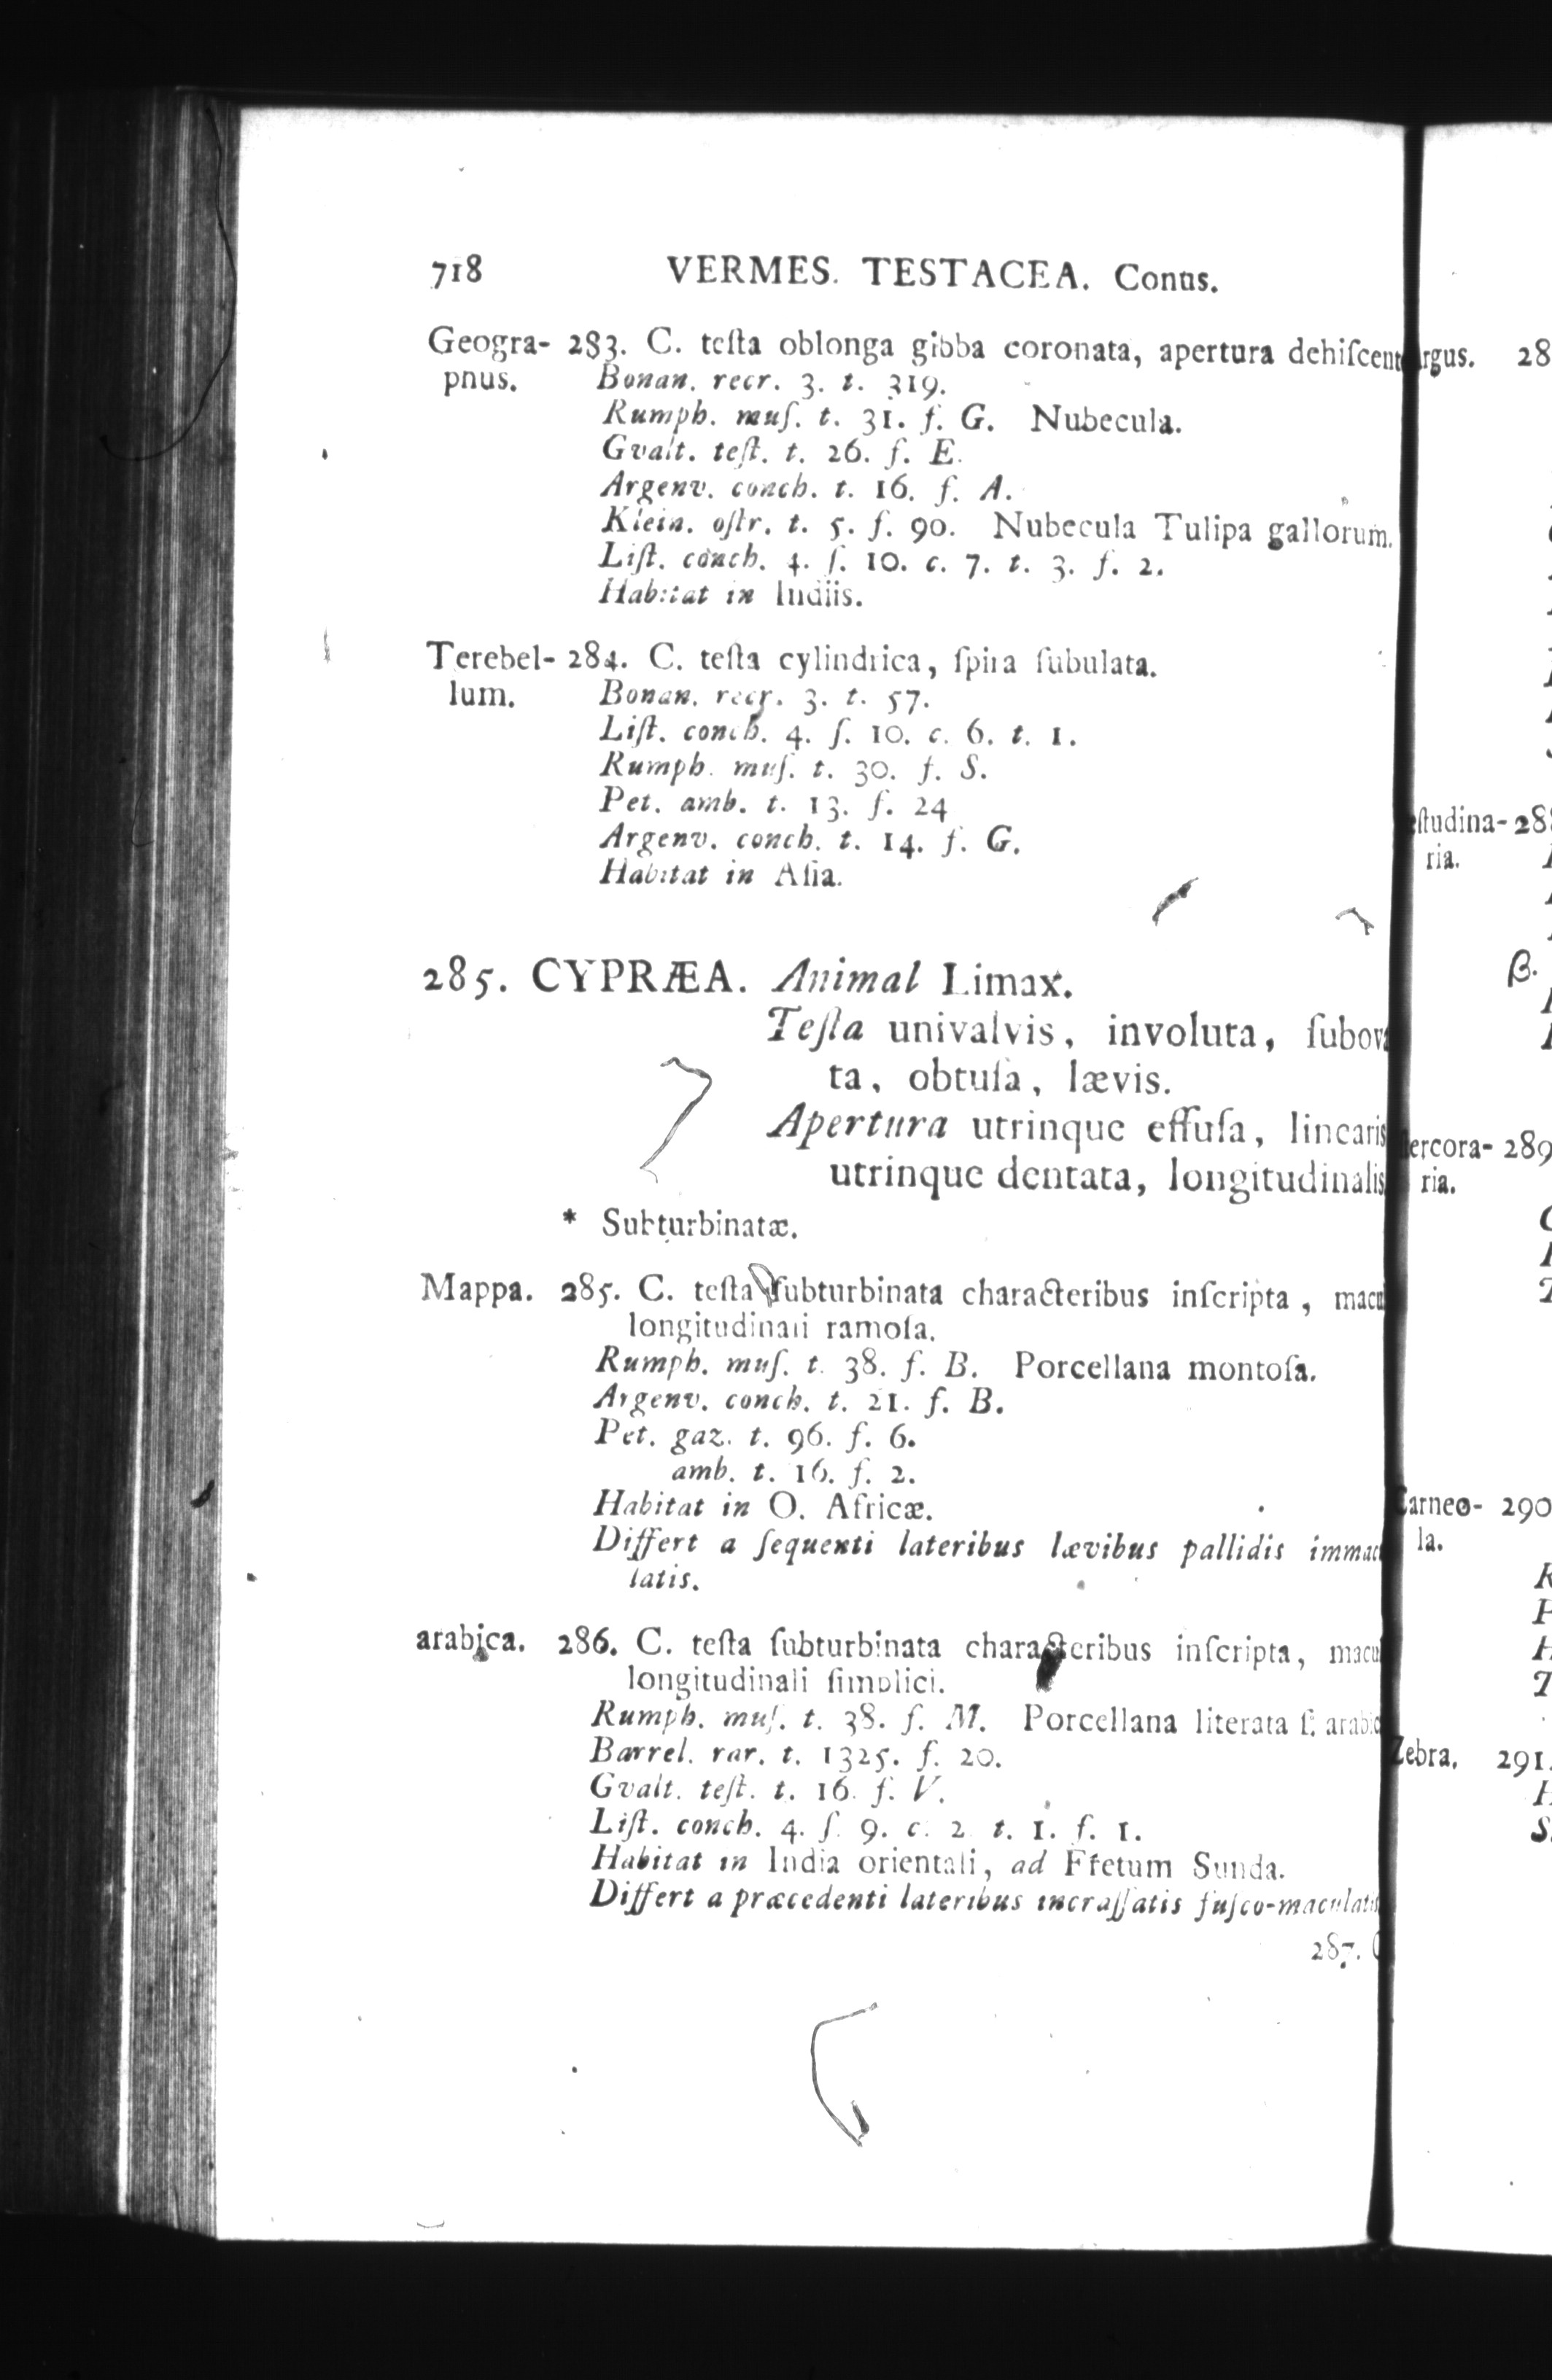 718 VERMES. TESTACEA. Conus.
Geogra- 283. C. teſta oblonga gibba coronata, apertura dehiſcent
phus. Bonan. recr. 3. t. 319.
Rumph. muſ. t. 31. f. G. Nubecula.
Gvalt. teſt. t. 26. f. E.
Argenv. conch. t. 16. f. A.
Klein. oſtr. t. 5. f. 90. Nubecula Tulipa gallorum.
Liſt. conch. 4. ſ. 10. c. 7. t. 3. f. 2.
Habitat in Indiis.
Terebel- 284. C. teſta cylindrica, ſpira ſubulata.
lum. Bonan. recr. 3. t. 57.
Liſt. conch. 4. ſ. 10. c. 6. t. 1.
Rumph. muſ. t. 30. f. S.
Pet. amb. t. 13. f. 24
Argenv. conch. t. 14. f. G.
Habitat in Aſia.
285. CYPRÆA. Animal Limax.
Teſta univalvis, involuta, ſubova
ta, obtuſa, lævis.
Apertura utrinque effuſa, linearis
utrinque dentata, longitudinalis
* Subturbinatæ.
Mappa. 285. C. teſta ſubturbinata characteribus inſcripta, macu
longitudinali ramoſa.
Rumph. muſ. t. 38. f. B. Porcellana montoſa.
Argenv. conch. t. 21. f. B.
Pet. gaz. t. 96. f. 6.
amb. t. 16. f. 2.
Habitat in O. Africæ.
Differt a ſequenti lateribus lævibus pallidis immacu
latis.
arabica. 286. C. teſta ſubturbinata characteribus inſcripta, macu
longitudinali ſimplici.
Rumph. muſ. t. 38. f. M. Porcellana literata ſ. arabic
Barrel. rar. t. 1325. f. 20.
Gvalt. teſt. t. 16. f. V.
Liſt. conch. 4. ſ. 9. c. 2 t. 1. f. 1.
Habitat in India orientali, ad Fretum Sunda.
Differt a præcedenti lateribus incraſſatis fuſco-maculatis
287. C
rgus. 28
ſtudina- 288
ria.
β.
ercora- 289
ria.
Carneo- 290
la.
Zebra. 291.